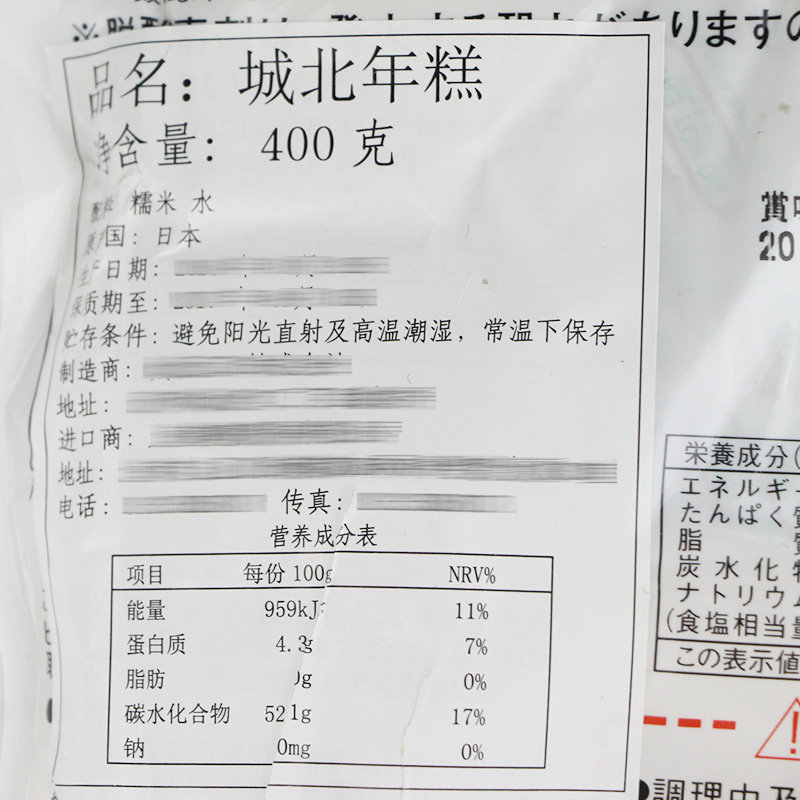 がありますの
品名：城北年糕
净含量：400 克
配料 糯米 水
原产国：日本
生产日期：
保质期至：
贮存条件：避免阳光直射及高温潮湿，常温下保存
制造商：
地址：
进口商：
地址：
电话： 传真：
营养成分表
项目 每份 100g NRV%
能量 959kJ 11%
蛋白质 4.3g 7%
脂肪 0g 0%
碳水化合物 52.1g 17%
钠 0mg 0%
賞味
20
栄養成分(
エネルギー
たんぱく質
脂 質
炭水化物
ナトリウム
(食塩相当量
この表示値
調理中及